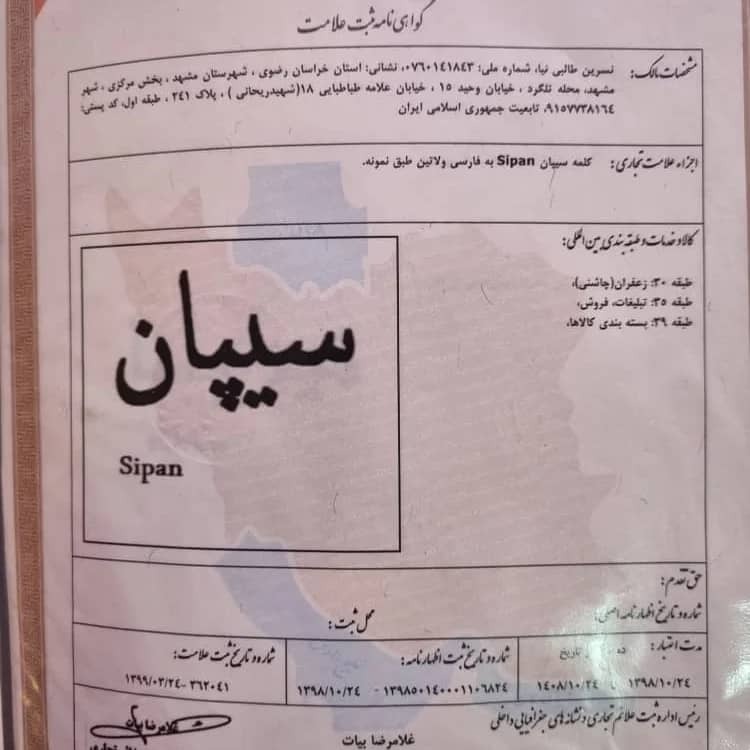 گواهی نامه ثبت علامت
مشخصات مالک: نسرین طالبی نیا، شماره ملی: ۰۷۶۰۱۴۱۸۴۳، نشانی: استان خراسان رضوی ، شهرستان مشهد ، بخش مرکزی ، شهر
مشهد، محله تلگرد ، خیابان وحید ۱۵ ، خیابان علامه طباطبایی ۱۸(شهیدریحانی ) ، پلاک ۲۴۱ ، طبقه اول، کد پستی:
۹۱۵۷۷۳۸۱۶۴، تابعیت جمهوری اسلامی ایران
اجزاء علامت تجاری: کلمه سیپان Sipan به فارسی ولاتین طبق نمونه.
کالا و خدمات و طبقه بندی بین المللی:
طبقه ۳۰: زعفران(چاشنی)،
طبقه ۳۵: تبلیغات، فروش،
طبقه ۳۹: بسته بندی کالاها،
سیپان
Sipan
حق تقدم:
شماره و تاریخ اظهارنامه اصلی:
محل ثبت:
مدت اعتبار: ده تاریخ
۱۳۹۸/۱۰/۲۴ ۱۴۰۸/۱۰/۲۴
شماره و تاریخ ثبت اظهارنامه:
۱۳۹۸۵۰۱۴۰۰۰۱۱۰۶۸۲۴ - ۱۳۹۸/۱۰/۲۴
شماره و تاریخ ثبت علامت:
۳۶۲۰۴۱ - ۱۳۹۹/۰۳/۲۴
رئیس اداره ثبت علائم تجاری و نشانه های جغرافیایی داخلی
غلامرضا بیات
غلامرضا بیات